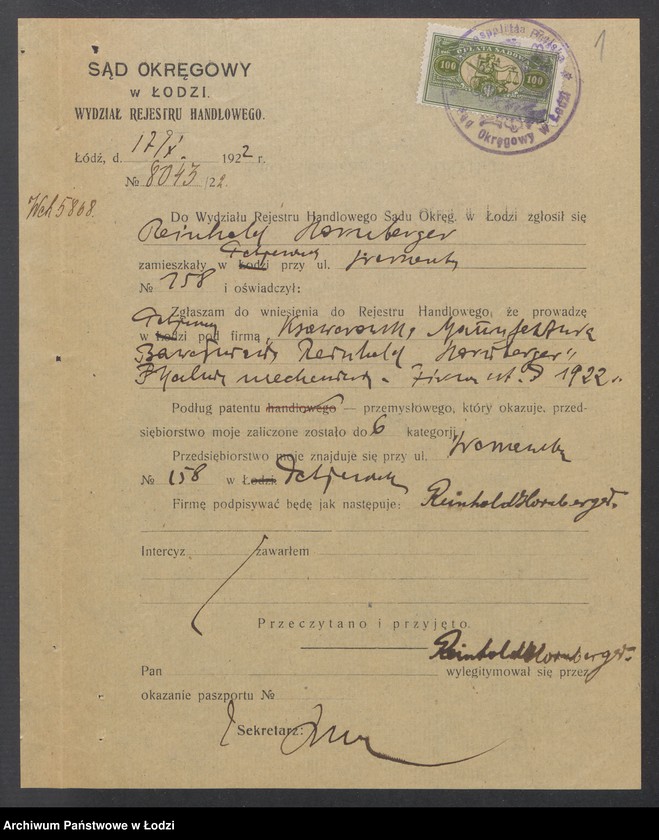 1
OPŁATA SĄDOWA
100 100
Sąd Okręgowy w Łodzi
SĄD OKRĘGOWY
w ŁODZI.
WYDZIAŁ REJESTRU HANDLOWEGO.
Łódź, d. 17/X. 1922 r.
№ 8043/22.
5868.
Do Wydziału Rejestru Handlowego Sądu Okręg. w Łodzi zgłosił się
Reinhold Hornberger
zamieszkały w Łodzi przy ul.
№ 158 i oświadczył:
Zgłaszam do wniesienia do Rejestru Handlowego, że prowadzę
w Łodzi pod firmą „
Reinhold Hornberger"
1922
Podług patentu handlowego — przemysłowego, który okazuje, przed-
siębiorstwo moje zaliczone zostało do 6 kategorji.
Przedsiębiorstwo moje znajduje się przy ul.
№ 158 w Łodzi
Firmę podpisywać będę jak następuje: Reinhold Hornberger.
Intercyz zawarłem
Przeczytano i przyjęto.
Reinhold Hornberger.
Pan wylegitymował się przez
okazanie paszportu №
Sekretarz:
Archiwum Państwowe w Łodzi